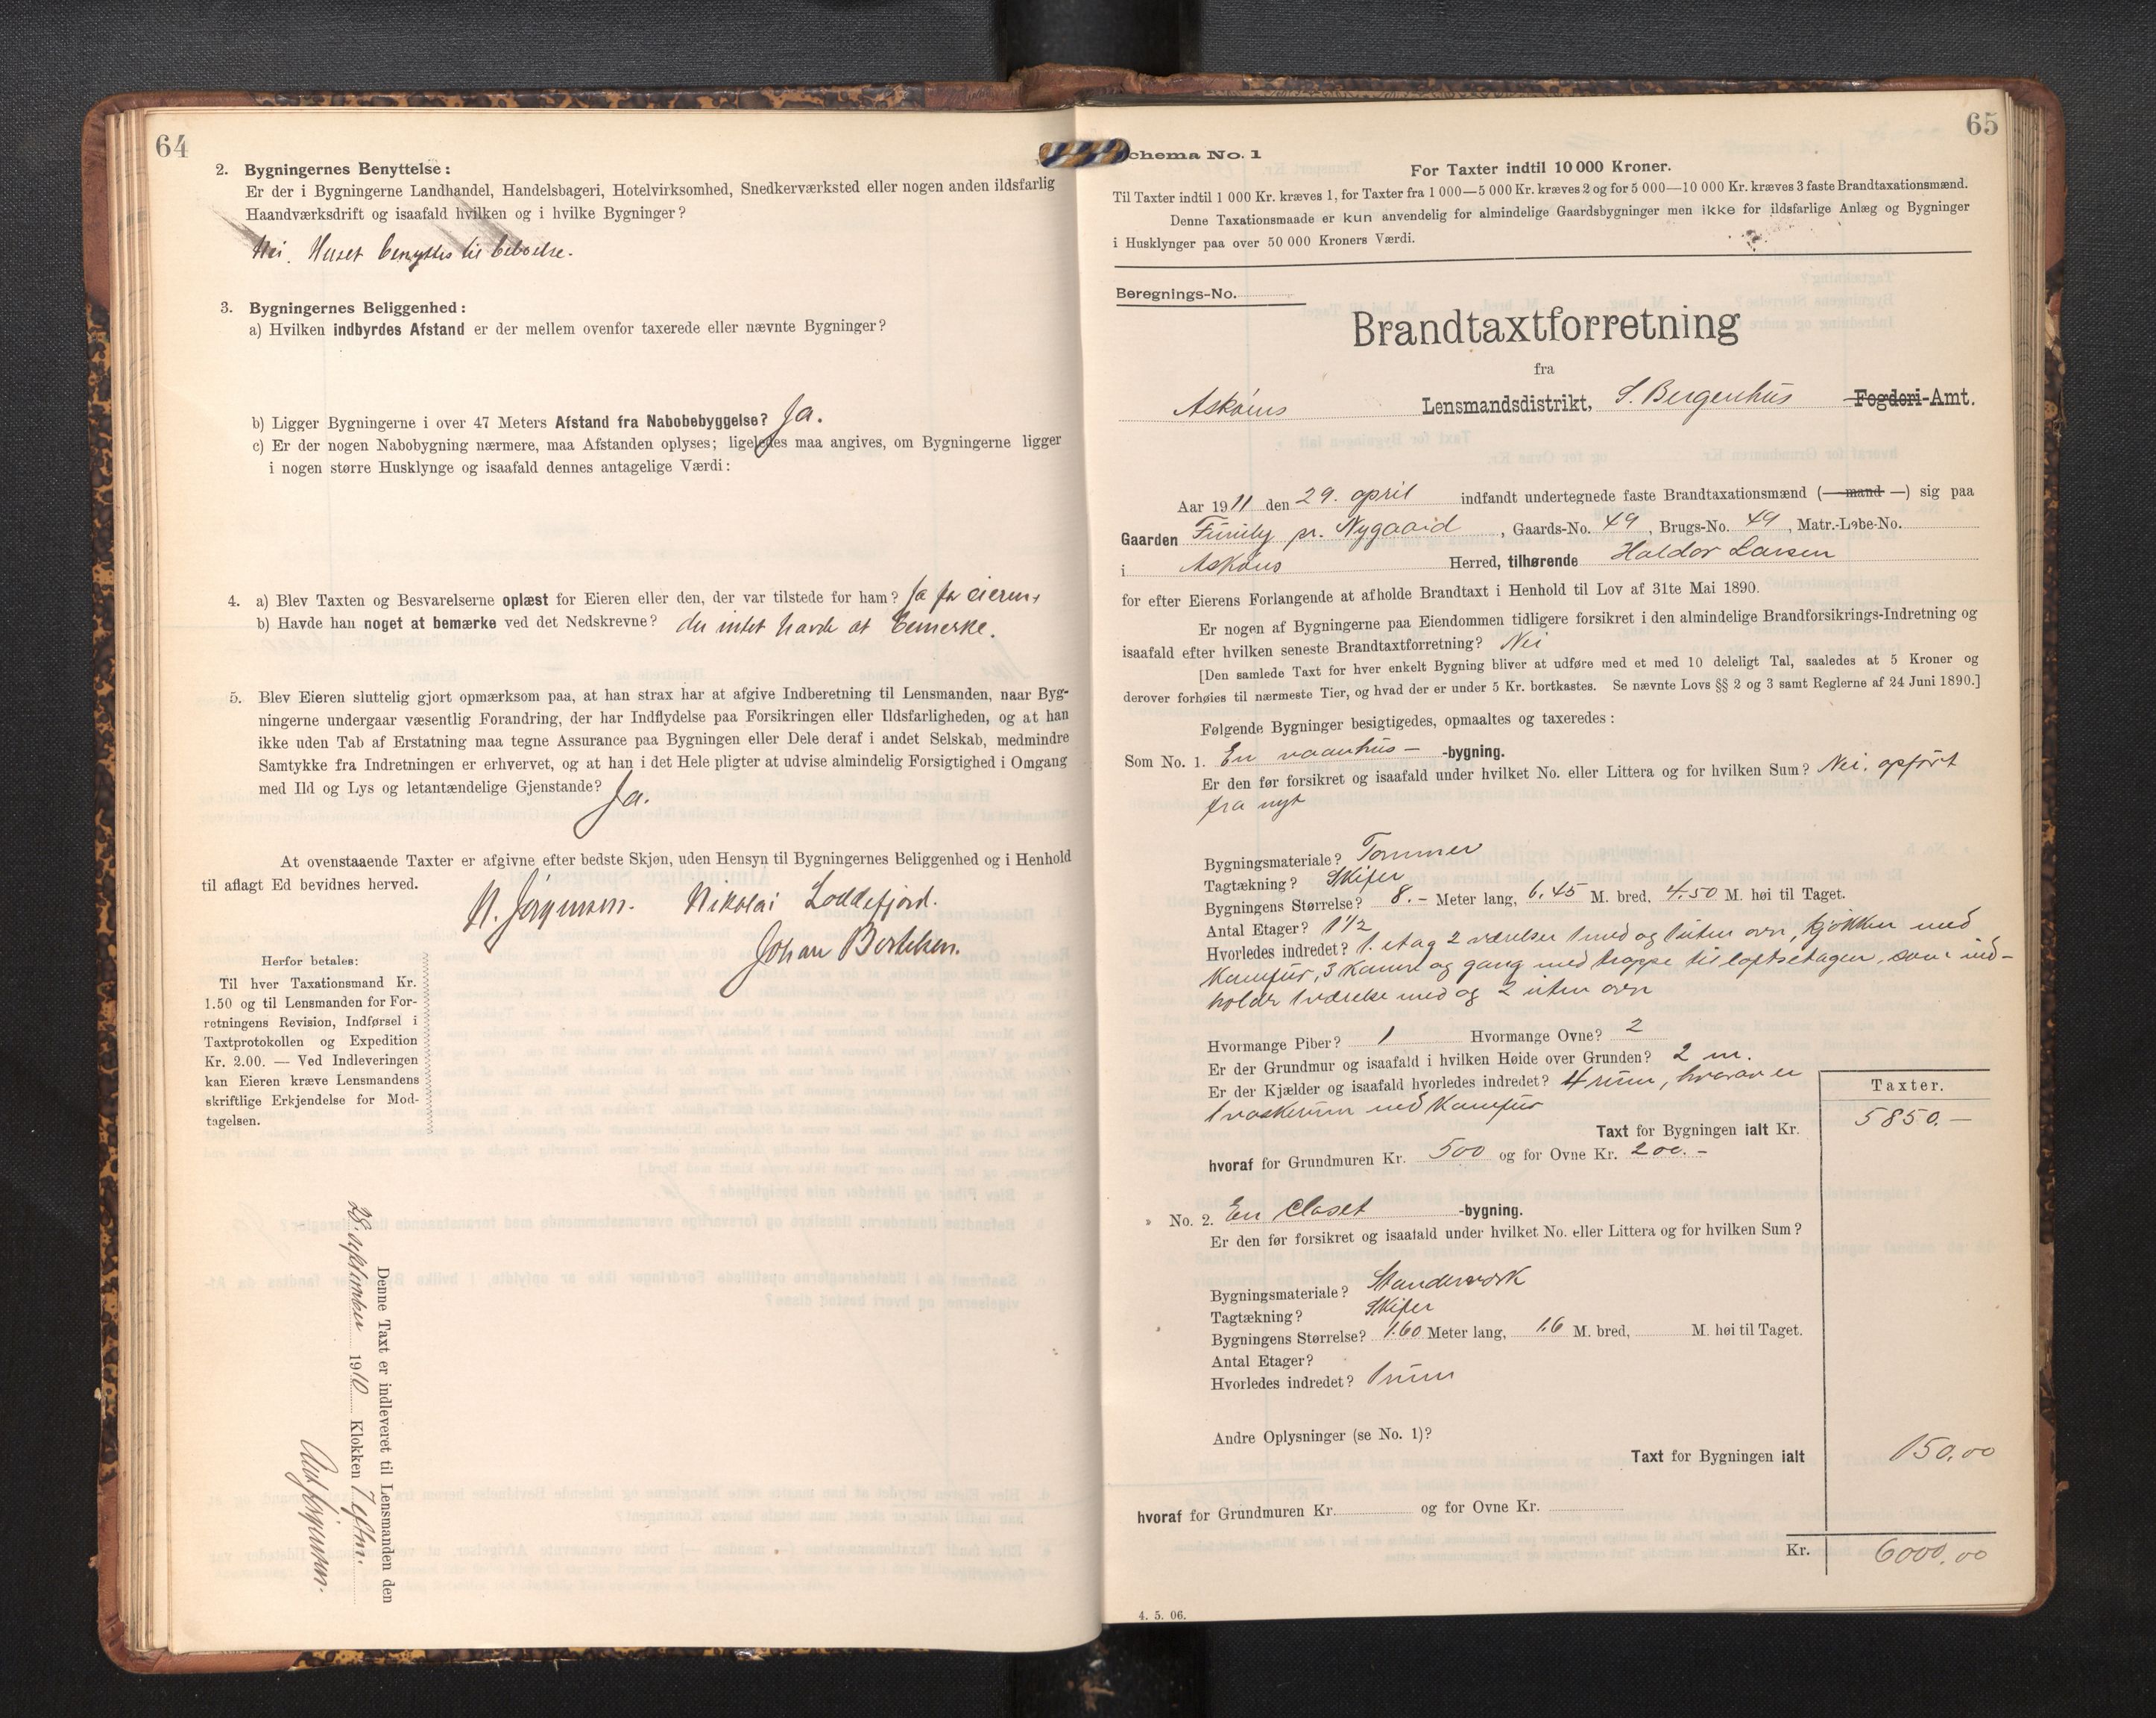 64
2. Bygningernes Benyttelse:
Er der i Bygningerne Landhandel, Handelsbageri, Hotelvirksomhed, Snedkerværksted eller nogen anden ildsfarlig
Haandværksdrift og isaafald hvilken og i hvilke Bygninger?
Nei. Huset benyttes til beboelse.
3. Bygningernes Beliggenhed:
a) Hvilken indbyrdes Afstand er der mellem ovenfor taxerede eller nævnte Bygninger?
b) Ligger Bygningerne i over 47 Meters Afstand fra Nabobebyggelse? Ja.
c) Er der nogen Nabobygning nærmere, maa Afstanden oplyses; ligeledes maa angives, om Bygningerne ligger
i nogen større Husklynge og isaafald dennes antagelige Værdi:
4. a) Blev Taxten og Besvarelserne oplæst for Eieren eller den, der var tilstede for ham? Ja for eieren,
b) Havde han noget at bemærke ved det Nedskrevne? der intet havde at bemerke.
5. Blev Eieren sluttelig gjort opmærksom paa, at han strax har at afgive Indberetning til Lensmanden, naar Byg-
ningerne undergaar væsentlig Forandring, der har Indflydelse paa Forsikringen eller Ildsfarligheden, og at han
ikke uden Tab af Erstatning maa tegne Assurance paa Bygningen eller Dele deraf i andet Selskab, medmindre
Samtykke fra Indretningen er erhvervet, og at han i det Hele pligter at udvise almindelig Forsigtighed i Omgang
med Ild og Lys og letantændelige Gjenstande? Ja.
At ovenstaaende Taxter er afgivne efter bedste Skjøn, uden Hensyn til Bygningernes Beliggenhed og i Henhold
til aflagt Ed bevidnes herved.
N. Jørgensen. Nikolai Loddefjord.
Johan Bertelsen.
Herfor betales:
Til hver Taxationsmand Kr.
1.50 og til Lensmanden for For-
retningens Revision, Indførsel i
Taxtprotokollen og Expedition
Kr. 2.00. — Ved Indleveringen
kan Eieren kræve Lensmandens
skriftlige Erkjendelse for Mod-
tagelsen.
Denne Taxt er indleveret til Lensmanden den
28. september 1910 Klokken 7 eftm.
65
Schema No. 1
For Taxter indtil 10 000 Kroner.
Til Taxter indtil 1 000 Kr. kræves 1, for Taxter fra 1 000—5 000 Kr. kræves 2 og for 5 000—10 000 Kr. kræves 3 faste Brandtaxationsmænd.
Denne Taxationsmaade er kun anvendelig for almindelige Gaardsbygninger men ikke for ildsfarlige Anlæg og Bygninger
i Husklynger paa over 50 000 Kroners Værdi.
Beregnings-No.
Brandtaxtforretning
fra
Askøens Lensmandsdistrikt, S. Bergenhus Fogderi-Amt.
Aar 1911 den 29. april indfandt undertegnede faste Brandtaxationsmænd (— mand —) sig paa
Gaarden pr. Nygaard, Gaards-No. 49, Brugs-No. 49, Matr.-Løbe-No.
i Askøens Herred, tilhørende Haldor Larsen
for efter Eierens Forlangende at afholde Brandtaxt i Henhold til Lov af 31te Mai 1890.
Er nogen af Bygningerne paa Eiendommen tidligere forsikret i den almindelige Brandforsikrings-Indretning og
isaafald efter hvilken seneste Brandtaxtforretning? Nei
[Den samlede Taxt for hver enkelt Bygning bliver at udføre med et med 10 deleligt Tal, saaledes at 5 Kroner og
derover forhøies til nærmeste Tier, og hvad der er under 5 Kr. bortkastes. Se nævnte Lovs §§ 2 og 3 samt Reglerne af 24 Juni 1890.]
Følgende Bygninger besigtigedes, opmaaltes og taxeredes:
Som No. 1. En vaanhus- -bygning.
Er den før forsikret og isaafald under hvilket No. eller Littera og for hvilken Sum? Nei. opført
fra nyt
Bygningsmateriale? Tømmer
Tagtækning? Skifer
Bygningens Størrelse? 8.- Meter lang, 6.45 M. bred, 4.50 M. høi til Taget.
Antal Etager? 1½
Hvorledes indredet? 1. etag 2 værelser 1 med og 1 uten ovn, kjøkken med
Komfur, 3 Kamre og gang med trappe til loftsetagen, som ind-
holder 1 værelse med og 2 uten ovn
Hvormange Piber? 1 Hvormange Ovne? 2
Er der Grundmur og isaafald i hvilken Høide over Grunden? 2 m.
Er der Kjælder og isaafald hvorledes indredet? 4 rum, hvorav er
1 vaskerum med Komfur
Taxter.
Taxt for Bygningen ialt Kr. 5850.—
hvoraf for Grundmuren Kr. 500 og for Ovne Kr. 200.-
No. 2. En Closet -bygning.
Er den før forsikret og isaafald under hvilket No. eller Littera og for hvilken Sum?
Bygningsmateriale? Standerværk
Tagtækning? Skifer
Bygningens Størrelse? 1.60 Meter lang, 1.6 M. bred, M. høi til Taget.
Antal Etager?
Hvorledes indredet? 1 rum
Andre Oplysninger (se No. 1)?
Taxt for Bygningen ialt 150,00
hvoraf for Grundmuren Kr. og for Ovne Kr.
Kr. 6000,00
4. 5. 06.